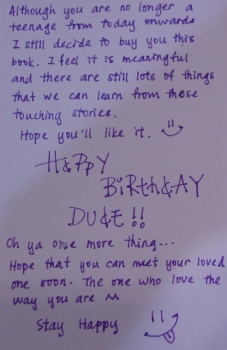 Although you are no longer a
teenage from today onwards
I still decide to buy you this
book. I feel it is meaningful
and there are still lots of things
that we can learn from those
touching stories.
Hope you'll like it.
HAPPY
BiRthdAY
DUDE!!
Oh ya one more thing...
Hope that you can meet your loved
one soon. The one who love the
way you are ^^
Stay Happy